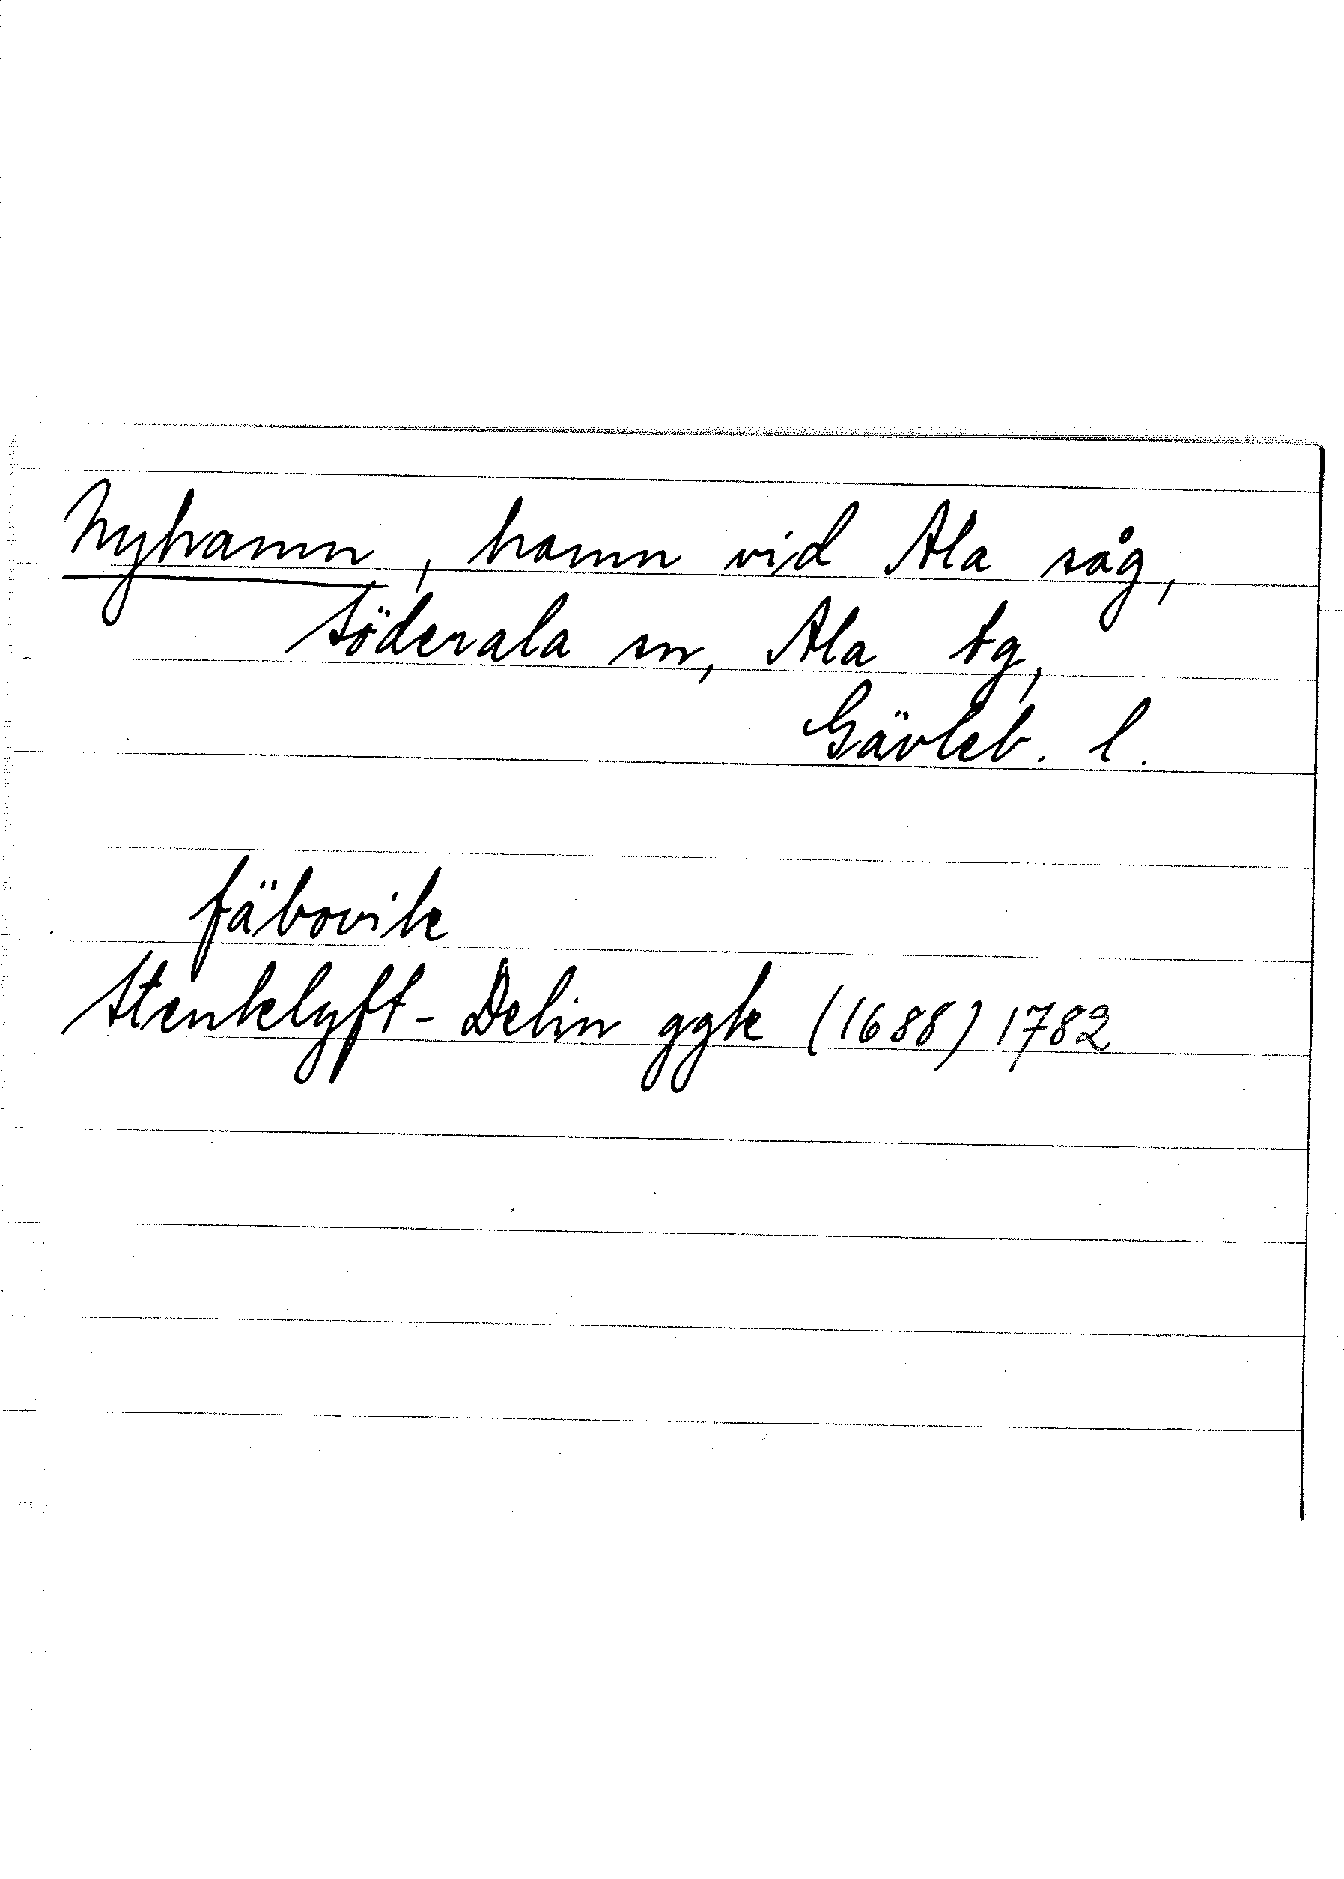 Nyhamn, hamn vid Ala såg,
Söderala sn, Ala tg,
Gävleb. l.
fäbovik
Stenklyft-Delin ggk (1688) 1782